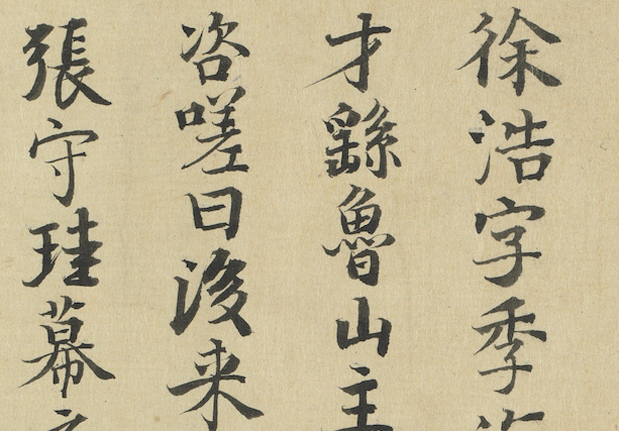 徐浩字季
才繇魯山主
咨嗟曰後来
張守珪幕